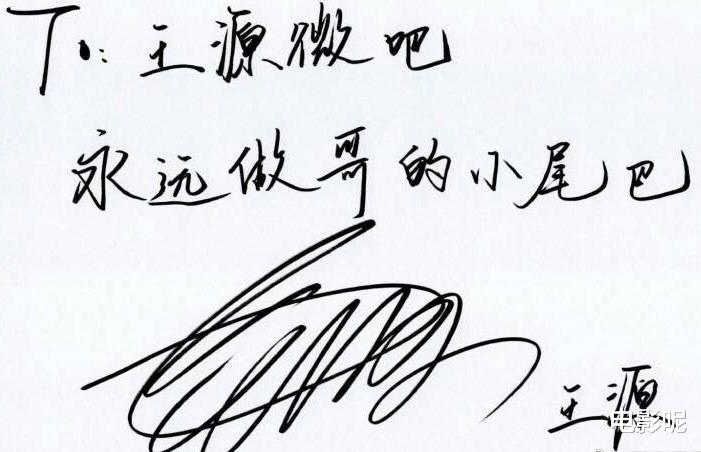 To: 王源微吧
永远做哥的小尾巴
王源
电影呢